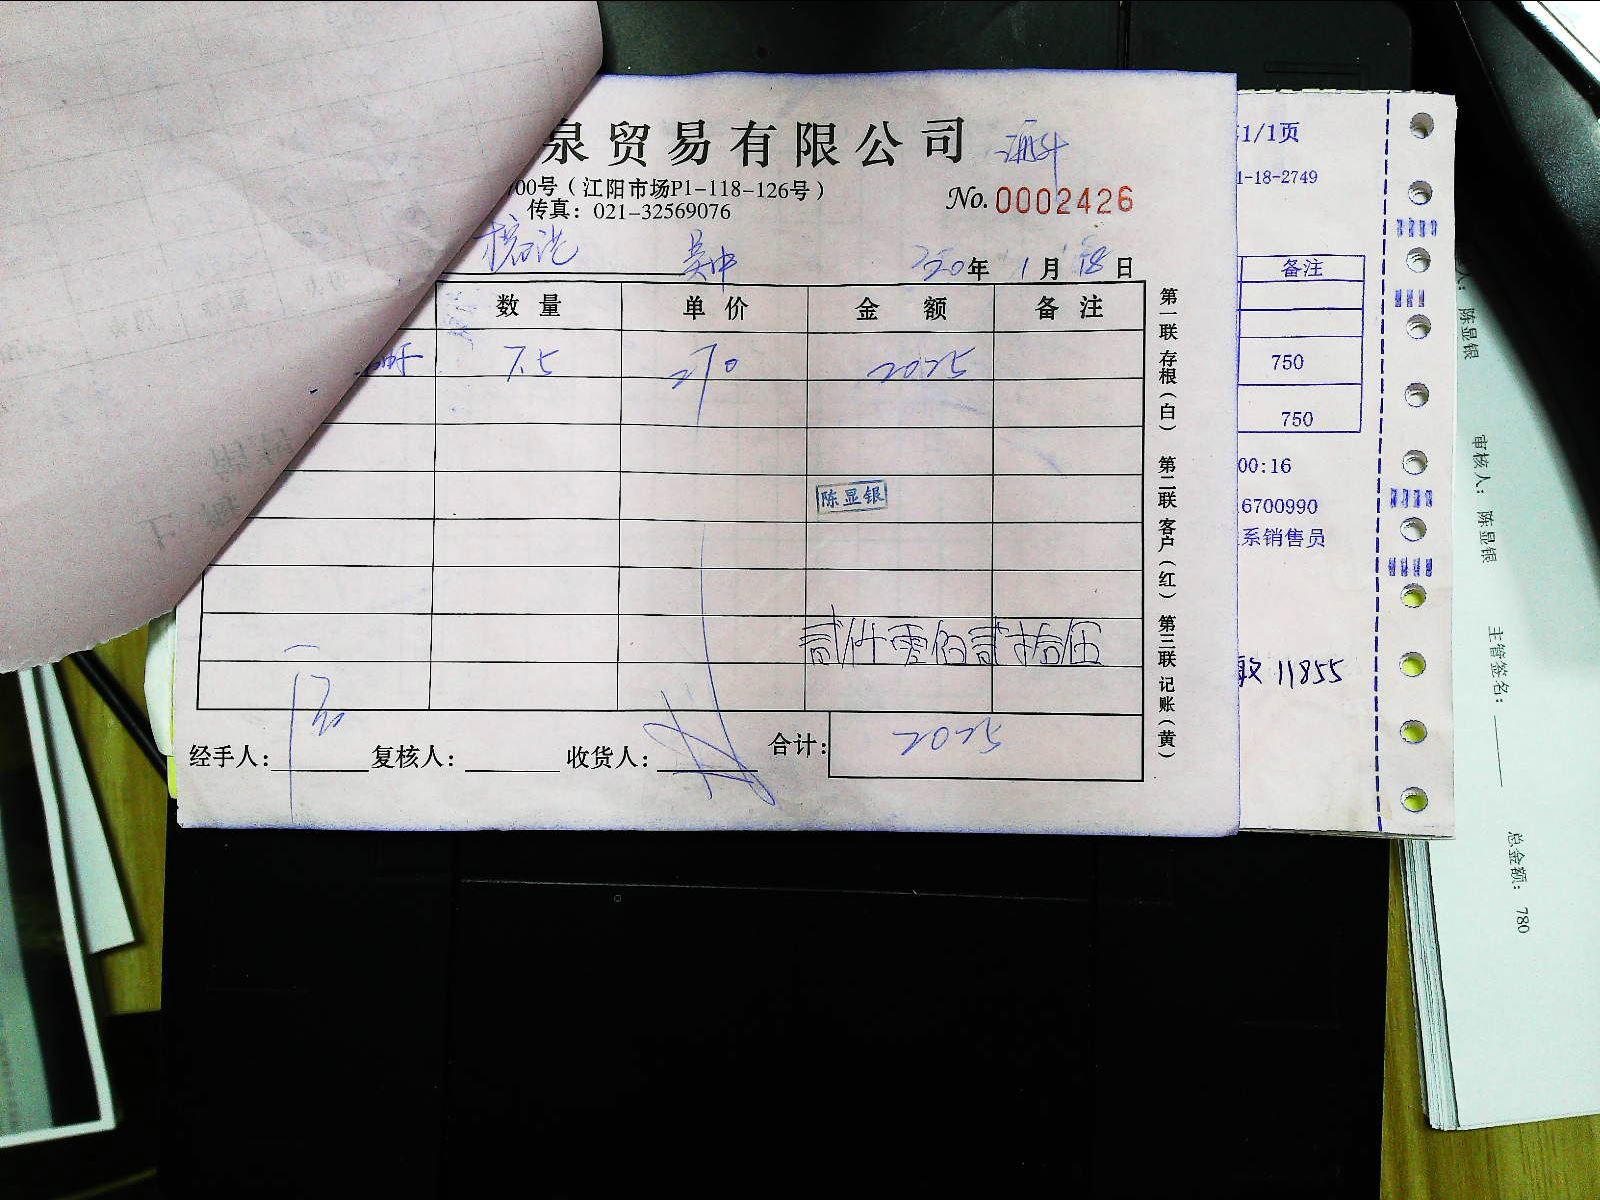 泉贸易有限公司
00号（江阳市场P1-118-126号）
传真：021-32569076
No. 0002426
年 1 月 18 日
数量 单价 金额 备注
7.5 270 2025
陈显银
贰仟零佰贰拾伍
经手人： 复核人： 收货人： 合计： 2025
第一联 存根（白） 第二联 客户（红） 第三联 记账（黄）
1/1页
1-18-2749
备注
750
750
00:16
6700990
系销售员
11855
陈显银
审核人： 陈显银
主管签名：
总金额： 780